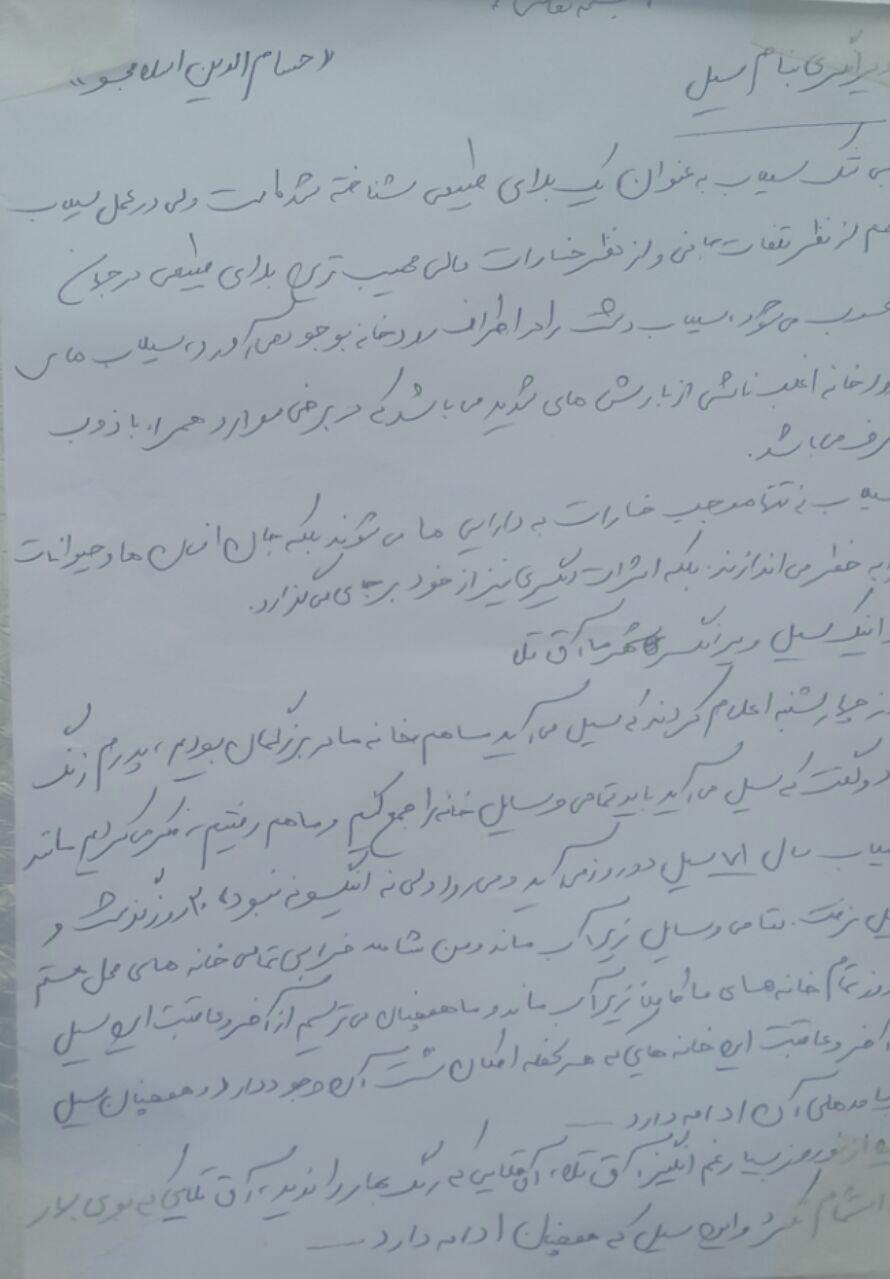 ویرانگری بنام سیل
«حسام الدین اسلامجو»
بی شک سیلاب به عنوان یک بلای طبیعی شناخته شده است ولی در عمل سیلاب
هم از نظر تلفات جانی و از نظر خسارات مالی مهیب ترین بلای طبیعی در جهان
محسوب می شود، سیلاب دشت را در اطراف رودخانه بوجود می آورد، سیلاب های
رودخانه اغلب ناشی از بارش های شدید می باشد که در برخی موارد همراه با ذوب
برف می باشد.
سیلاب نه تنها موجب خسارات به دارایی ما می شوند بلکه جان انسان ها و حیوانات
را به خطر می اندازند. بلکه اثرات دیگری نیز از خود بر جای می گذارد.
و اینک سیل ویرانگر شهر ما آق قلا
روز چهارشنبه اعلام کردند که سیل می آید ما هم خانه مادر بزرگمان بودیم، پدرم زنگ
زد و گفت که سیل می آید باید تمامی وسایل خانه را جمع کنیم و ما هم رفتیم، فکر می کردیم مانند
سیلاب سال ۷۱ سیل دو روز می آید و می رود ولی نه اینگونه نبود، ۲۰ روز گذشت و
سیل نرفت. تمامی وسایل زیر آب ماند و من شاهد خرابی تمامی خانه های محل هستم
روز تمام خانه های ما زیر آب ماند و ما همچنان می ترسیم از آخر و عاقبت این سیل
آخر و عاقبت این خانه هایی که هر لحظه امکان نشست آن وجود دارد و همچنان سیل
پیامدهای آن ادامه دارد ــــــ
از نوروز بسیار غم انگیز آق قلا، آق قلایی که رنگ بهار را ندید، آق قلایی که بوی بهار
استشمام نکرد و این سیل که همچنان ادامه دارد ــــــ